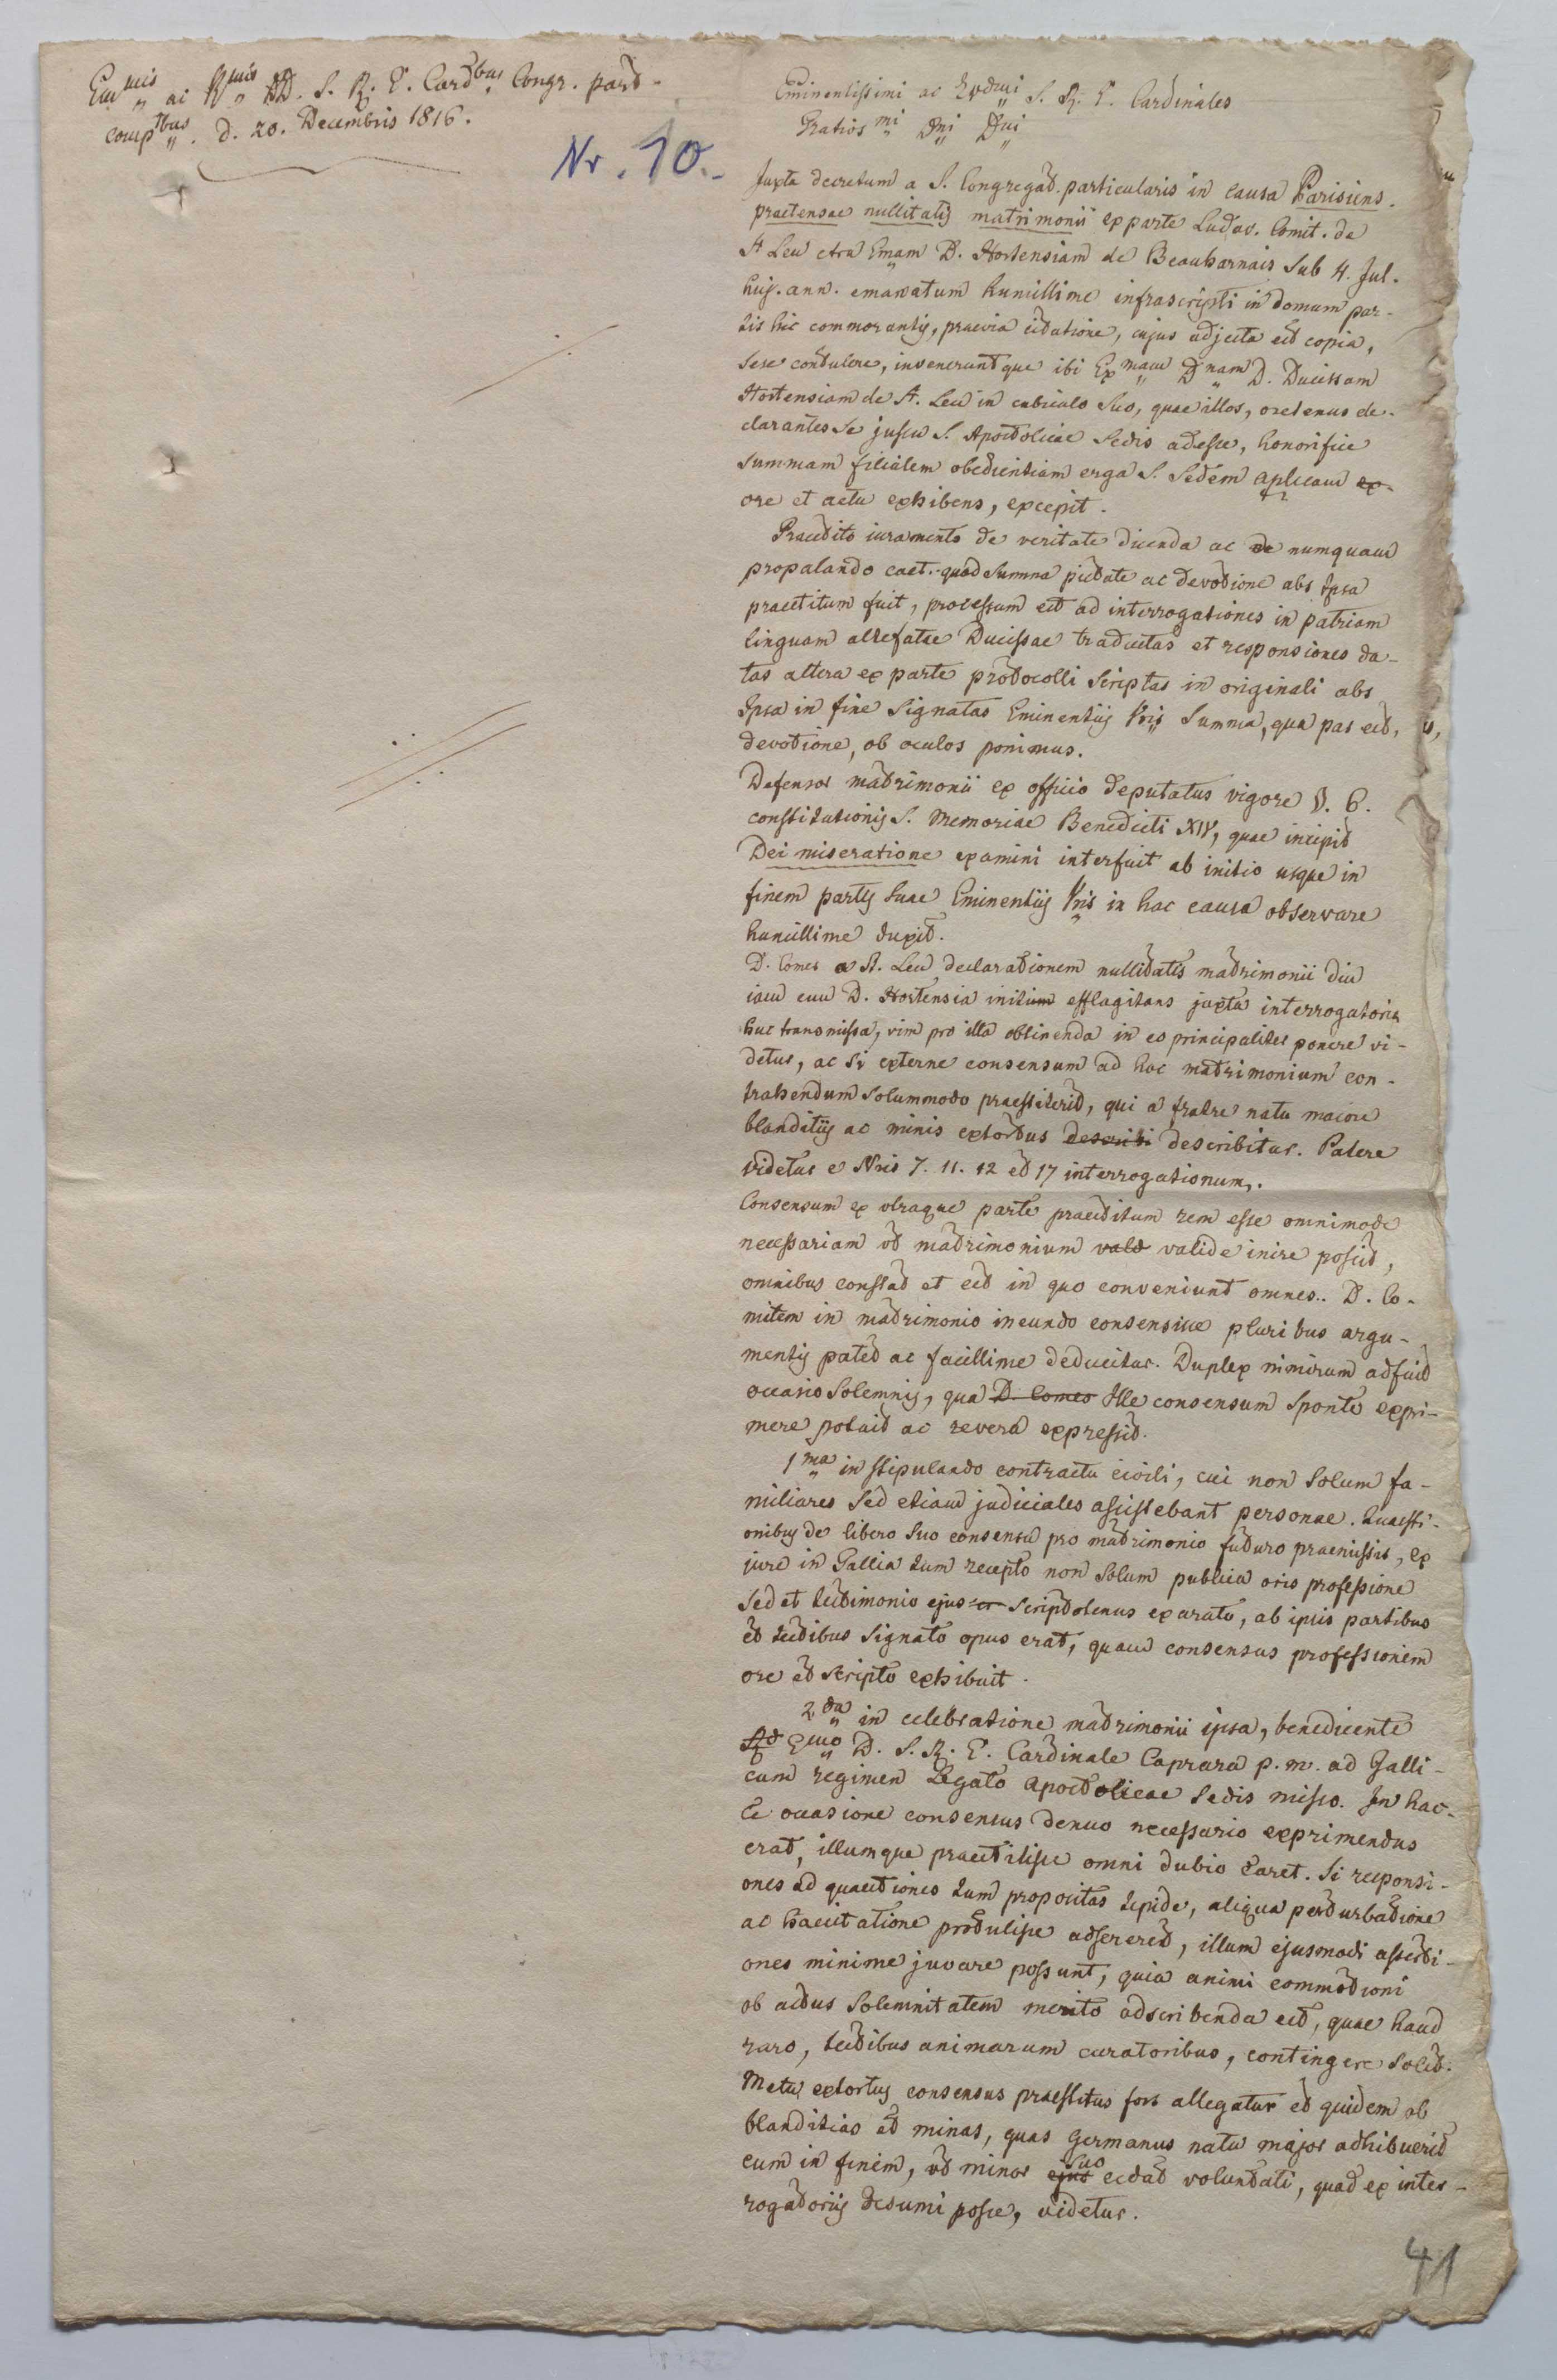 Em mis ac R mis DD. S. R. E. Card bus Congr. part-
comp tbus. d. 20. Decembris 1816.
Nr. 10.-
Eminentissimi ac Rvdmi S. R. E. Cardinales
Gratios mi Dni Dni
Juxta decretum a S. Congregat. particularis in causa Parisiens.
praetensae nullitatis matrimonii ex parte Ludov. Comit. de
St Leu ctra Emam D. Hortensiam de Beauharnais sub 4. Jul.
huj. ann. emanatum humillime infrascripti in domum par-
tis hic commorantis, praevia citatione, cujus adjecta est copia,
sese contulere, inveneruntque ibi Ex mam D nam D. Ducissam
Hortensiam de St. Leu in cubiculo suo, quae illos, oretenus de-
clarantes se jussu S. Apostolicae Sedis adesse, honorifice
summam filialem obedientiam erga S. Sedem aplicam ex-
ore et actu exhibens, excepit.
Praestito iuramento de veritate dicenda ac de numquam
propalando caet. quod summa pietate ac devotione abs Ipsa
praestitum fuit, processum est ad interrogationes in patriam
linguam altefatae Ducissae traductas et responsiones da-
tas altera ex parte protocolli scriptas in originali abs
Ipsa in fine signatas Eminentiis Vris summa, qua par est,
devotione, ob oculos ponimus.
Defensor matrimonii ex officio deputatus vigore
constitutionis S. Memoriae Benedicti XIV, quae incipit
Dei miseratione examini interfuit ab initio usque in
finem partis suae Eminentiis Vris in hac causa observare
humillime duxit.
D. Comes a St. Leu declarationem nullitatis matrimonii diu
iam cum D. Hortensia initum efflagitans juxta interrogatoria
huc transmissa, vim pro illa obtinenda in eo principaliter ponere vi-
detur, ac si externe consensum ad hoc matrimonium con-
trahendum solummodo praestiterit, qui a fratre natu maiore
blanditiis ac minis extortus describi describitur. Patere
videtur e Nris 7. 11. 12 et 17 interrogationum.
Consensum ex utraque parte praestitum rem esse omnimode
necessariam ut matrimonium vald valide inire possit,
omnibus constat et est in quo conveniunt omnes.. D. Co-
mitem in matrimonio ineundo consensisse pluribus argu-
mentis patet ac facillime deducitur. Duplex nimirum adfuit
occasio solemnis, qua D. Comes Ille consensum sponte expri-
mere potuit ac revera expressit.
1 ma in stipulando contractu civili, cui non solum fa-
miliares sed etiam judiciales assistebant personae. Quaesti-
onibus de libero suo consensu pro matrimonio futuro praemissis, ex
jure in Gallia tum recepto non solum publica oris professione
sed et testimonio ejus scriptotenus exarato, ab ipsis partibus
et testibus signato opus erat, quam consensus professionem
ore et scripto exhibuit.
2 da in celebratione matrimonii ipsa, benedicente
Emo D. S. R. E. Cardinale Caprara p. m. ad Galli-
cum regimen Legato apostolicae Sedis misso. In hac-
ce occasione consensus denuo necessario exprimendus
erat, illumque praestitisse omni dubio caret. Si responsi-
ones ad quaestiones tum propositas tepide, aliqua perturbatione
ac haesitatione protulisse adsereret, illum ejusmodi asserti-
ones minime juvare possunt, quia animi commotioni
ob actus solemnitatem merito adscribenda est, quae haud
raro, testibus animarum curatoribus, contingere solet.
Metu extortus consensus praestitus fors allegatur et quidem ob
blanditias et minas, quas germanus natu major adhibuerit
eum in finem, ut minor ejus suo cedat voluntati, quod ex inter-
rogatoriis desumi posse, videtur.
41